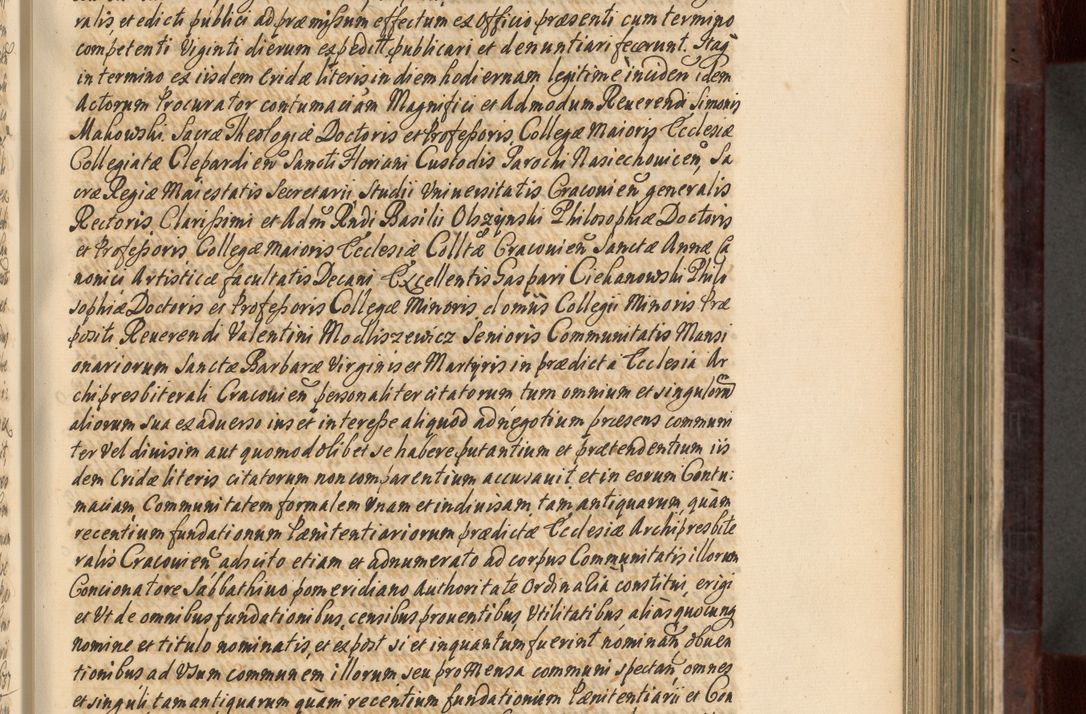 ralis, et edicti publici ad præmissum effectum ex Officio præsenti cum termino
competenti Viginti dierum expediti publicari et denuntiari fecerunt. Itaq
in termino ex iisdem Cridæ literis in diem hodiernam legitime inciden̄ idem
Actorum Procurator contumaciam Magnifici et Admodum Reuerendi Simonis
Makowski Sacræ Theologiæ Doctoris et Professoris, Collegæ Maioris Ecclesiæ
Collegiatæ Clepardien̄ Sancti Floriani Custodis Parochi Nasiechowicen̄, Sa
cræ Regiæ Maiestatis Secretarii, Studii Vniuersitatis Cracouien̄ generalis
Rectoris, Clarissimi et Adm̄ Rndi Basilii Olszynski Philosophiæ Doctoris
et Professoris Collegæ Maioris Ecclesiæ Colltæ Cracouien̄ Sanctæ Annæ Ca
nonici Artisticæ facultatis Decani, Excellentis Gaspari Ciekanowski Philo
sophiæ Doctoris et Professoris Collegæ Minoris, domus Collegii Minoris Præ
positi Reuerendi Valentini Modliszewicz Senioris Communitatis Mansi
onariorum Sanctæ Barbaræ Virginis et Martyris in prædicta Ecclesia Ar
chipresbiterali Cracouien̄ personaliter citatorum tum omnium et singulorum
aliorum sua ex aduerso ius et interesse aliquod ad negotium præsens communi
ter vel diuisim aut quomodolibet se habere putantium et prætendentium iis
dem Cridæ literis citatorum non comparentium accusauit, et in eorum Contu:
maciam Communitatem formalem Vnam et indiuisam, tam antiquarum, quam
recentium fundationum Pænitentiariorum prædictæ Ecclesiæ Archipresbite
ralis Cracouien̄ adscito etiam et adnumerato ad corpus Communitatis illorum
Concionatore Sabbathino pomeridiano Authoritate Ordinaria constitui, erigi
et Vt de omnibus fundationibus, censibus, prouentibus, Vtilitatibus alias quocunq
nomine et titulo nominatis, et expost si et inquantum fuerint nominan̄ obuen
tionibus ad Vsum communem illorum seu pro Mensa communi spectan̄ omnes
et singuli tam antiquarum quam recentium fundationum Pænitentiarii et Con